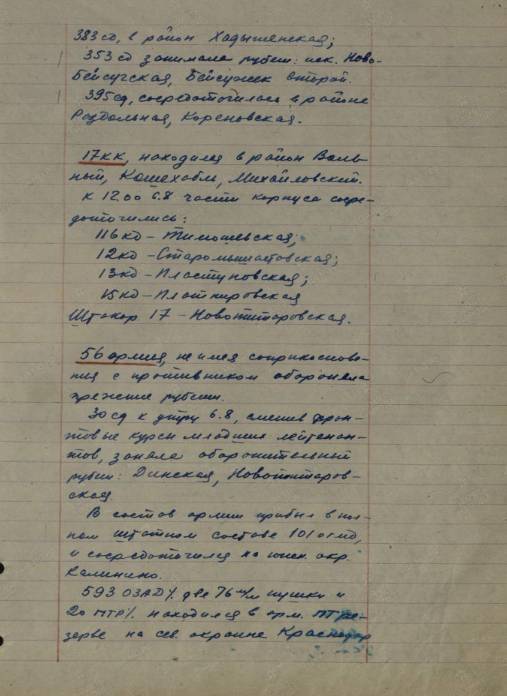 383сд, в район Хадыженская;
353 сд занимала рубеж: иск. Ново-
Бейсугская, Бейсужек второй.
395сд, сосредоточилась в районе
Раздольная, Кореновская.
17 кк, находился в район Воль-
ный, Кошехабль, Михайловский.
К 12.00 6.8 части корпуса сосре-
доточились:
116кд – Тимошевская;
12кд – Старомышастовская;
13кд – Пластуновская;
15кд – Платнировская
Штакор 17 – Новотитаровская.
56 армия, не имея соприкоснове-
ния с противником обороняла
прежние рубежи.
30 сд к утру 6.8, сменив фрон-
товые курсы младших лейтенан-
тов, заняла оборонительный
рубеж: Динская, Новотитаров-
ская.
В состав армии прибыл в пол-
ном штатном составе 101 огмд,
и сосредоточился на южн. окр.
Калинино.
593 ОЗАД /. две 76 м/м пушки и
20 ПТР/. находился в арм. ПТ ре-
зерве на сев. окраине Краснодар